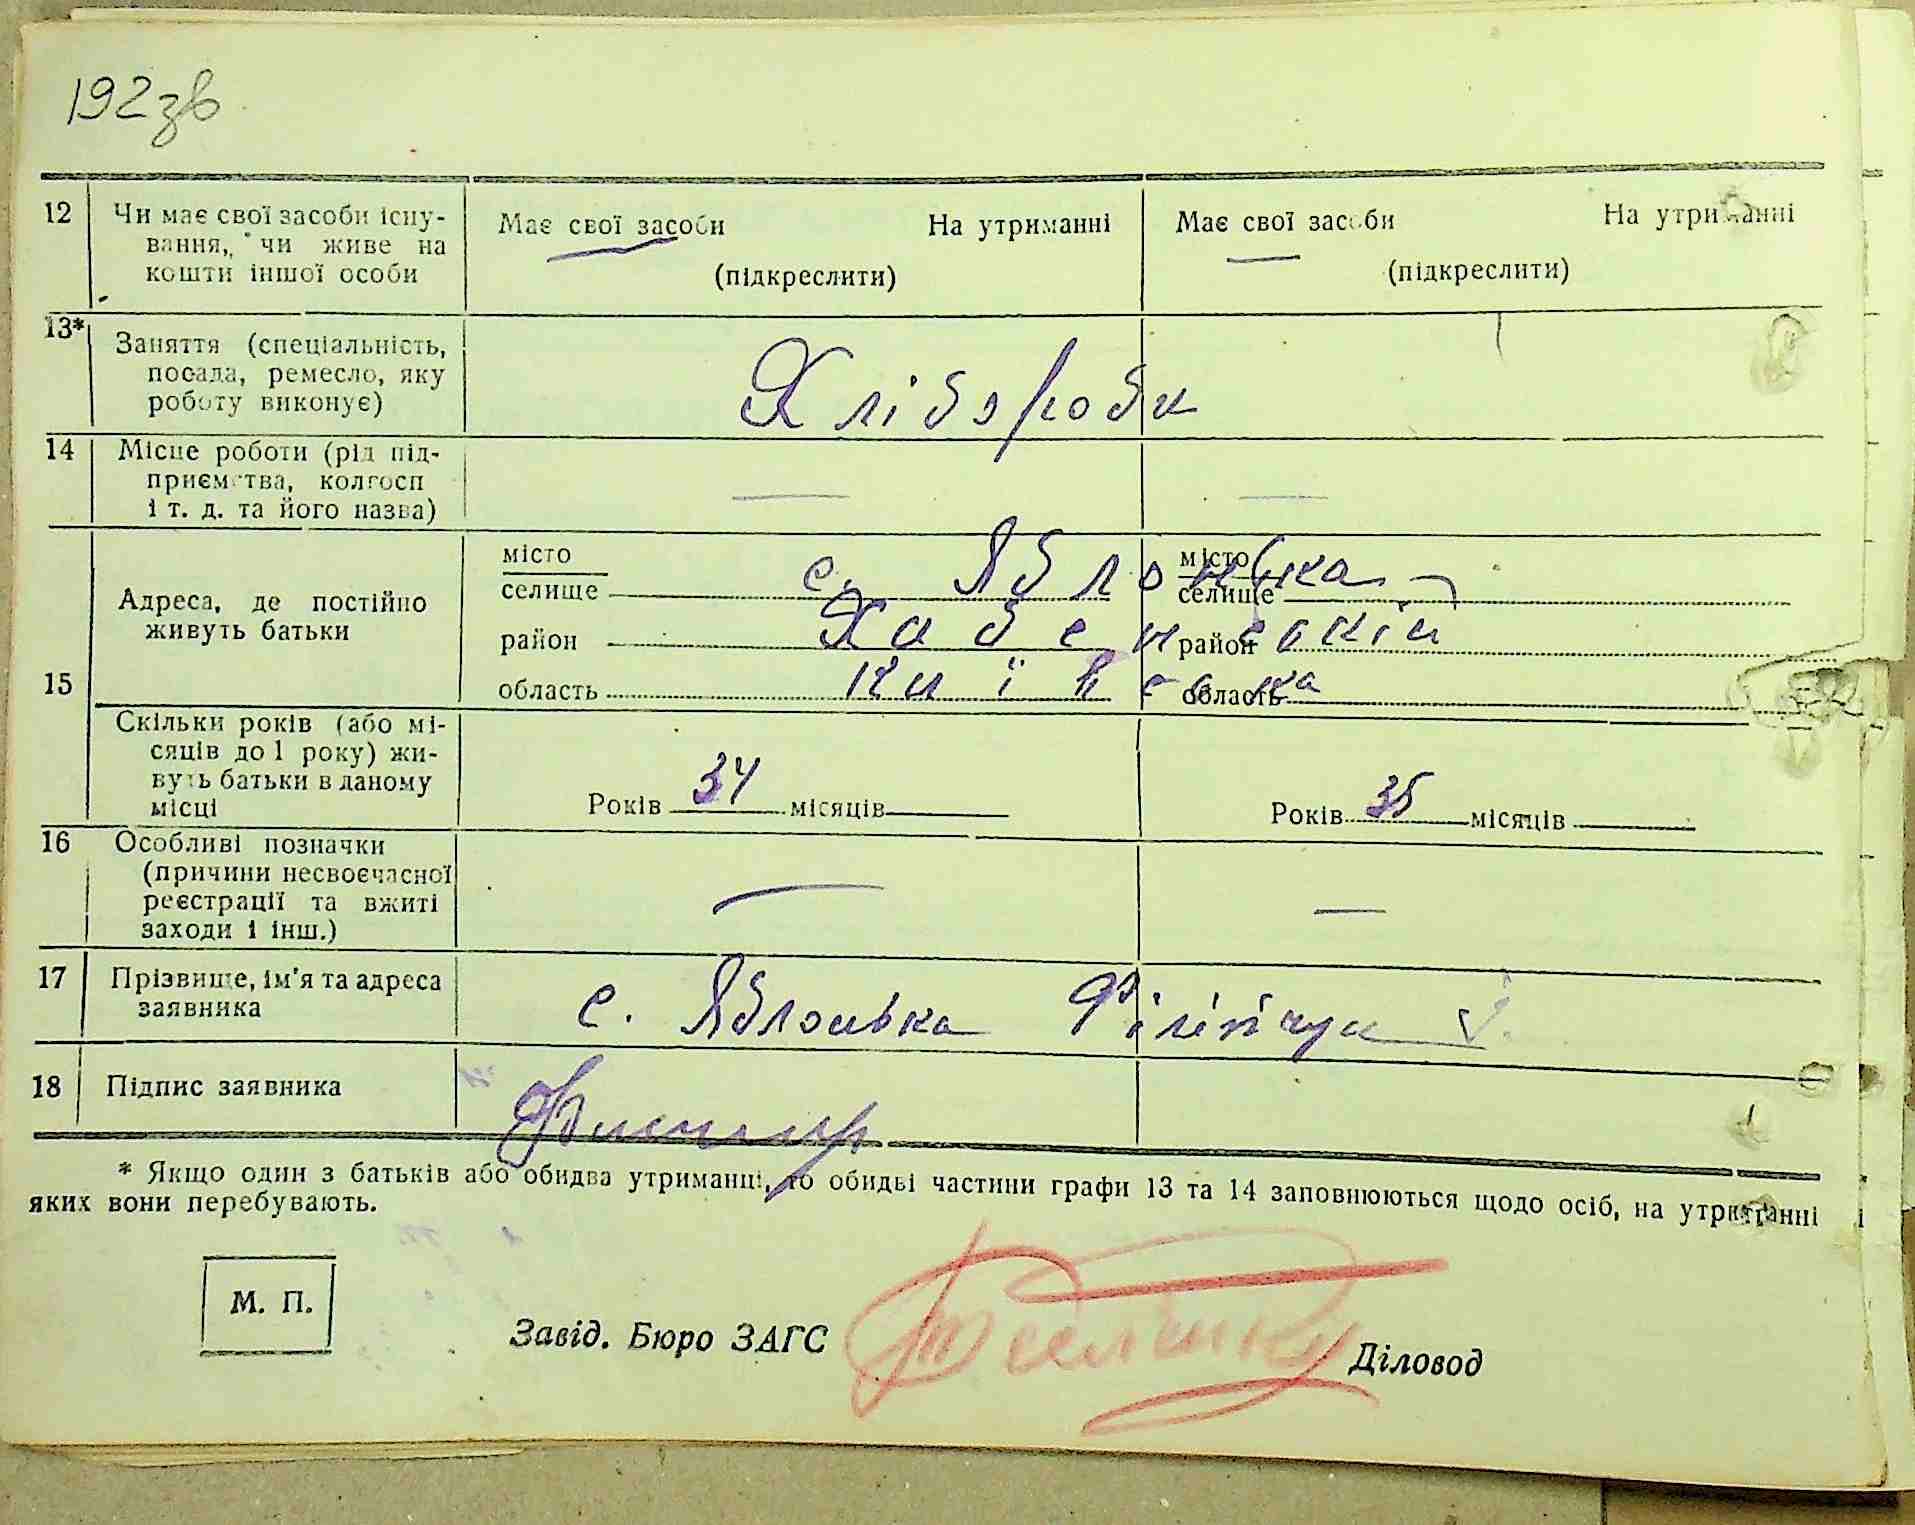 192зв
12 Чи має свої засоби існу- Має свої засоби На утриманні Має свої засоби На утриманні
вання, чи живе на
кошти іншої особи (підкреслити) (підкреслити)
13* Заняття (спеціальність,
посада, ремесло, яку Хлібороби
роботу виконує)
14 Місце роботи (рід під-
приємства, колгосп — —
і т. д. та його назва)
15 Адреса, де постійно
живуть батьки
місто місто
селище с. Яблонівка селище
район Хабенський район
область Київська область
Скільки років (або мі-
сяців до 1 року) жи-
вуть батьки в даному
місці Років 34 місяців Років 35 місяців
16 Особливі позначки
(причини несвоєчасної
реєстрації та вжиті — —
заходи і інш.)
17 Прізвище, ім'я та адреса
заявника с. Яблонівка
18 Підпис заявника
* Якщо один з батьків або обидва утриманці, то обидві частини графи 13 та 14 заповнюються щодо осіб, на утриманні
яких вони перебувають.
М. П.
Завід. Бюро ЗАГС Діловод